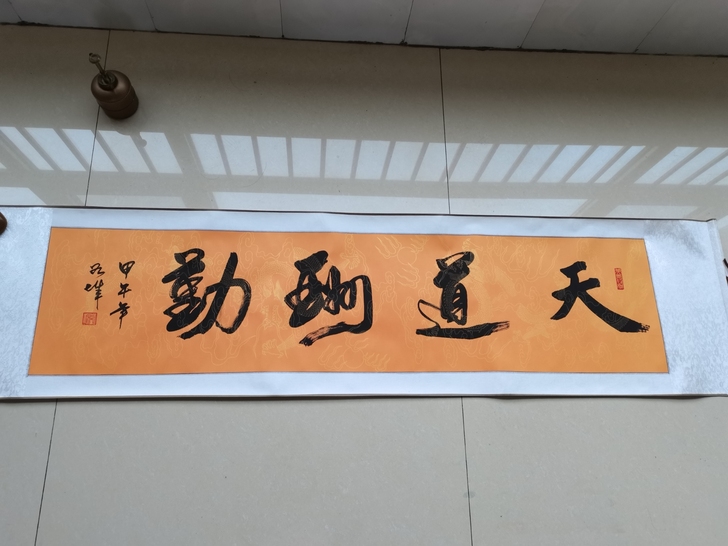 天道酬勤
甲午年